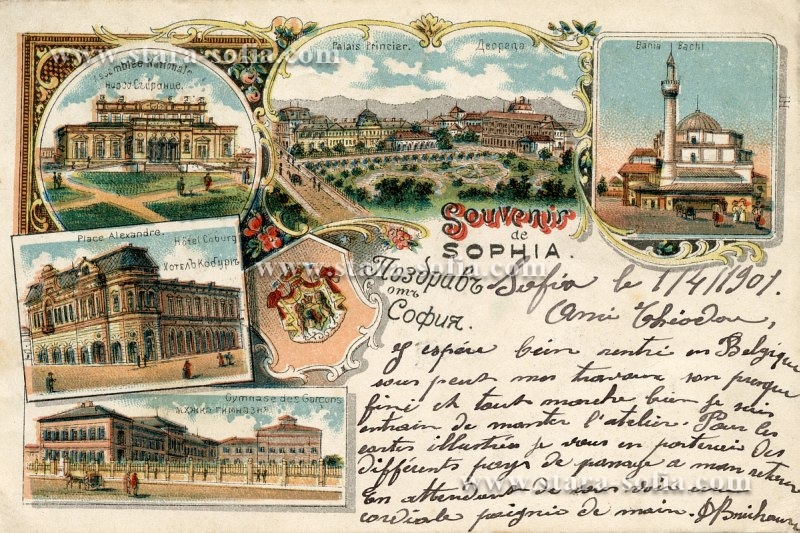 www.stara-sofia.com
Assemblée Nationale
Народ. Събрание.
Palais Princier. Двореца
Bania Bachi
Place Alexandre.
Hôtel Coburg
Хотелъ Кобургъ
Souvenir
de
SOPHIA.
Поздравъ
отъ
София.
www.stara-sofia.com
Gymnase des Garçons
Мѫжка гимназия
Sofia le 1/4/1901.
Ami Théodore,
J'espère bien rentré en Belgique
sous peu mes travaux son presque
fini et tout marche bien je suis
entrain de monter l'atelier. Pour les
cartes illustrées je vous en porterais des
différents pays de passage a mon retour
En attendant de vous voir une
cordiale poignée de main.
www.stara-sofia.com